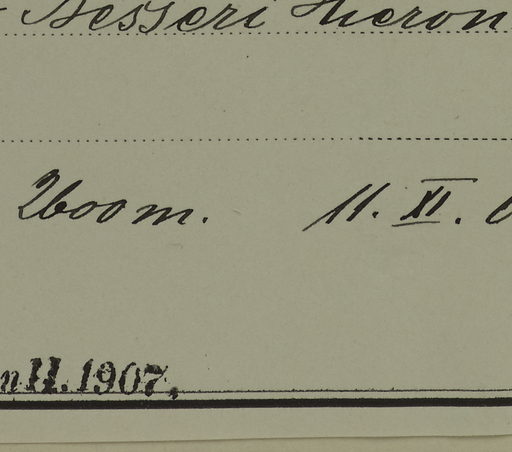 Besseri Hieron
2600 m. 11. XI. 0
n II. 1907.